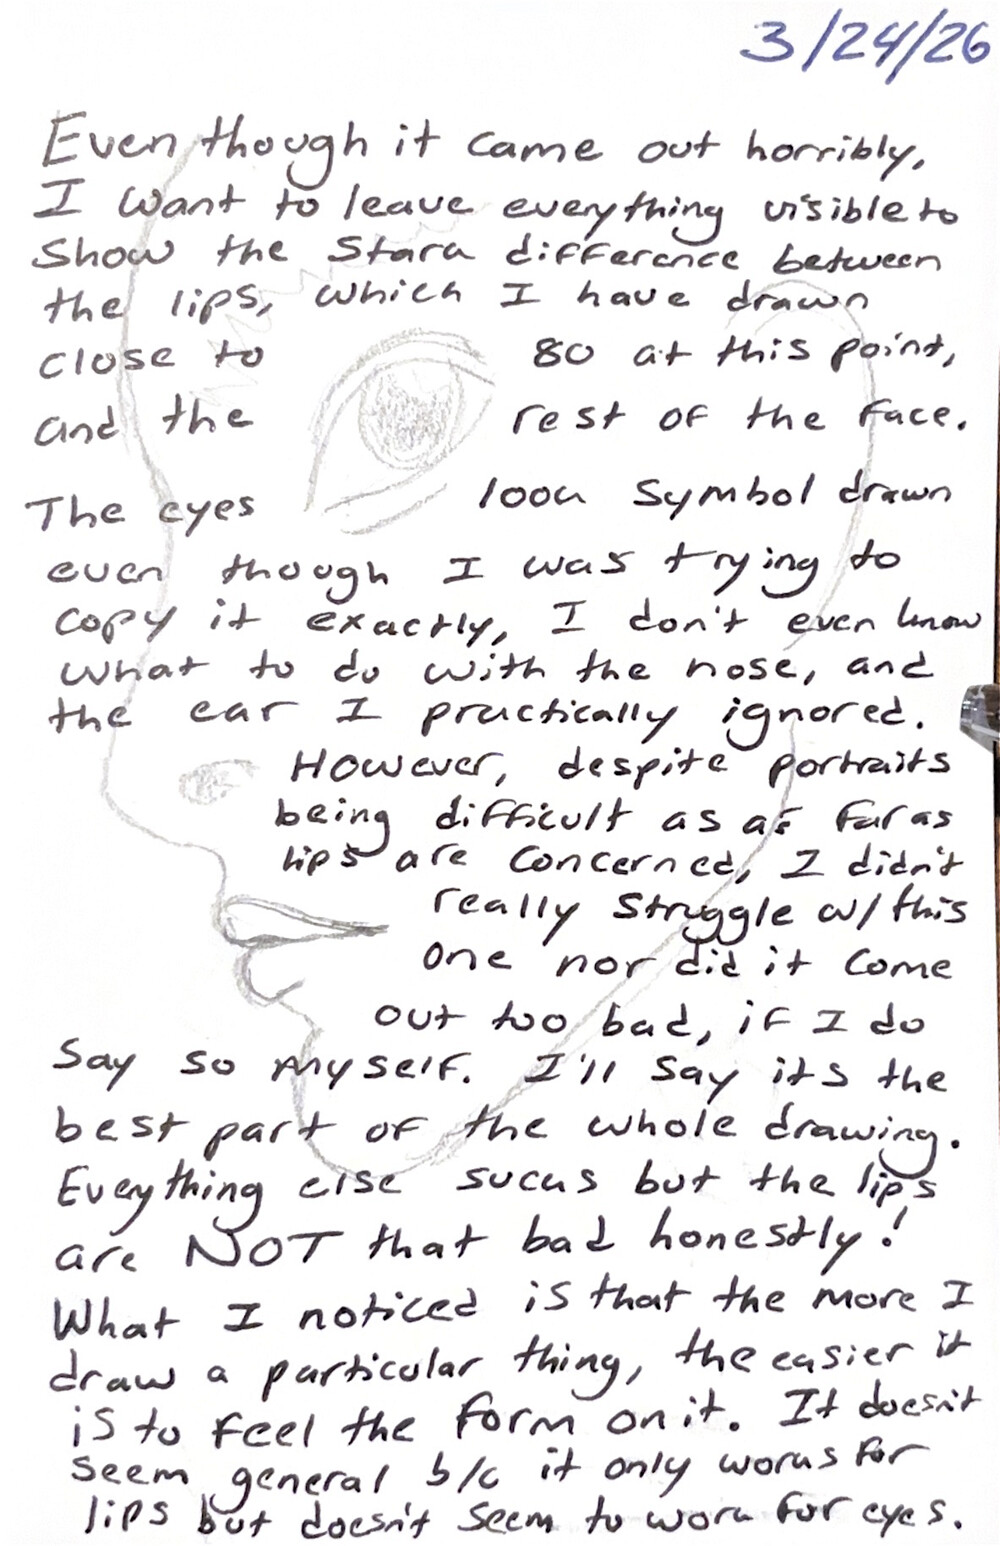 3/24/26
Even though it came out horribly,
I want to leave everything visible to
show the stark difference between
the lips, which I have drawn
close to 80 at this point,
and the rest of the face.
The eyes look symbol drawn
even though I was trying to
copy it exactly, I don't even know
what to do with the nose, and
the ear I practically ignored.
However, despite portraits
being difficult as as far as
lips are concerned, I didn't
really struggle w/ this
one nor did it come
out too bad, if I do
say so myself. I'll say its the
best part of the whole drawing.
Eveything else sucks but the lips
are NOT that bad honestly!
What I noticed is that the more I
draw a particular thing, the easier it
is to feel the form on it. It doesn't
seem general b/c it only works for
lips but doesn't seem to work for eyes.